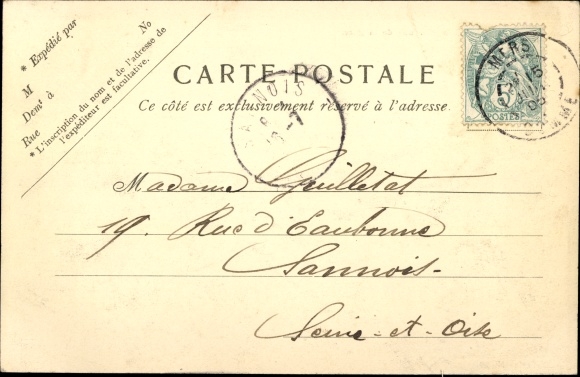 * Expédié par
M
Demt à
Rue No
* L'inscription du nom et de l'adresse de
l'expéditeur est facultative.
CARTE POSTALE
Ce côté est exclusivement réservé à l'adresse
MERS
5
POSTES
Madame Guilletat
19. Rue d'Eaubonne
Sannois-
Seine-et-Oise